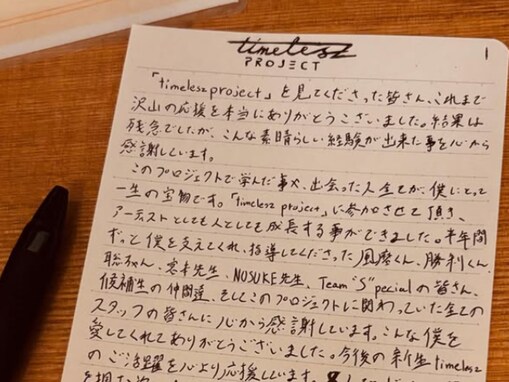 timelesz
PROJECT
1
「timelesz project」を見てくださった皆さん、これまで
沢山の応援を本当にありがとうございました。結果は
残念でしたが、こんな素晴らしい経験が出来た事を心から
感謝しています。
このプロジェクトで学んだ事や、出会った人全てが、僕にとって
一生の宝物です。「timelesz project」に参加させて頂き、
アーティストとしても人としても成長する事ができました。半年間
ずっと僕を支えてくれ、指導してくださった風磨くん、勝利くん、
聡ちゃん、宏未先生、NOSUKE先生、Team "S"pecialの皆さん、
候補生の仲間達、そしてこのプロジェクトに関わっていた全ての
スタッフの皆さんに心から感謝しています。こんな僕を
愛してくれてありがとうございました。今後の新生timelesz
のご活躍を心より応援しています。